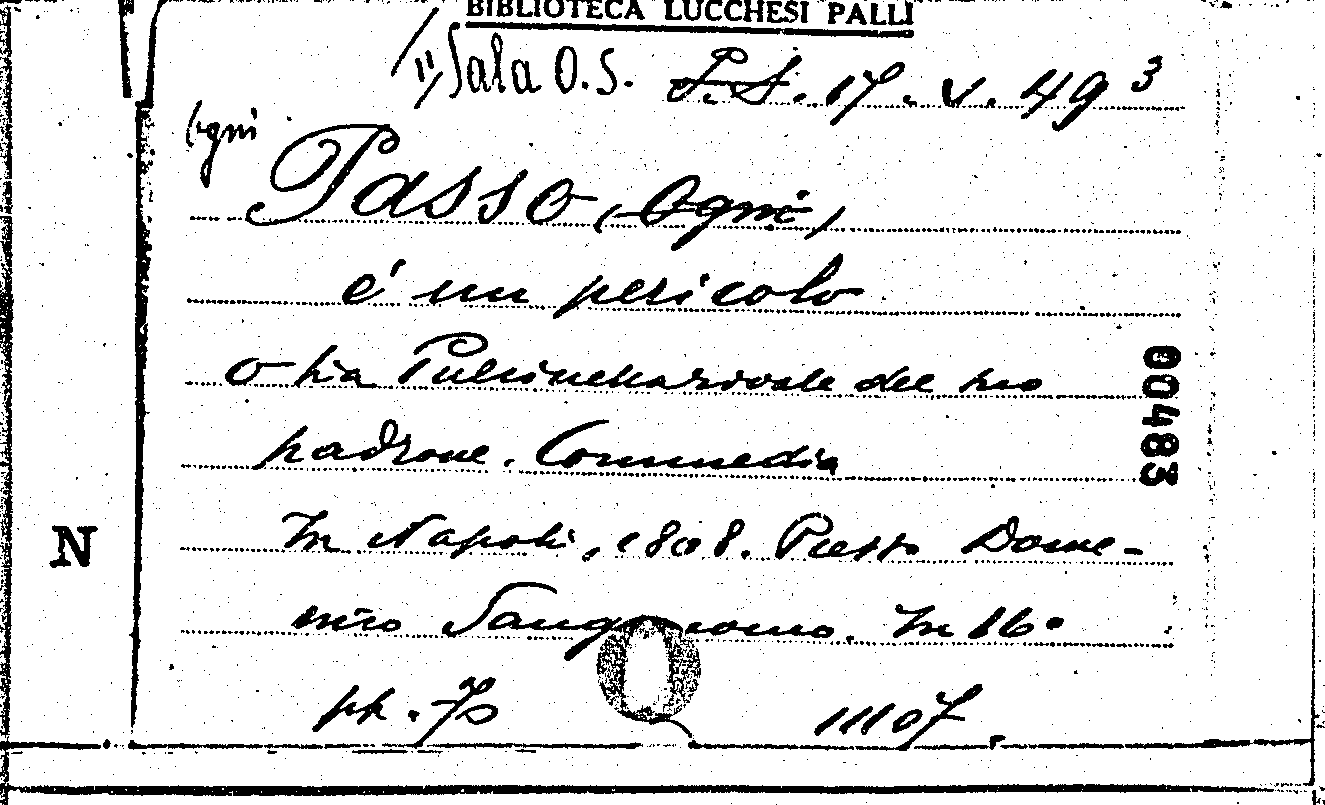 BIBLIOTECA LUCCHESI PALLI
Sala O.S. P.S. 17. V. 49 3
Ogni
Passo, (Ogni)
é un pericolo
o sia Pulcinella rivale del suo
padrone. Commedia
In Napoli, 1808. Presso Dome-
nico Sangiacomo. In 16°
pp. 70 11107.
00483
N